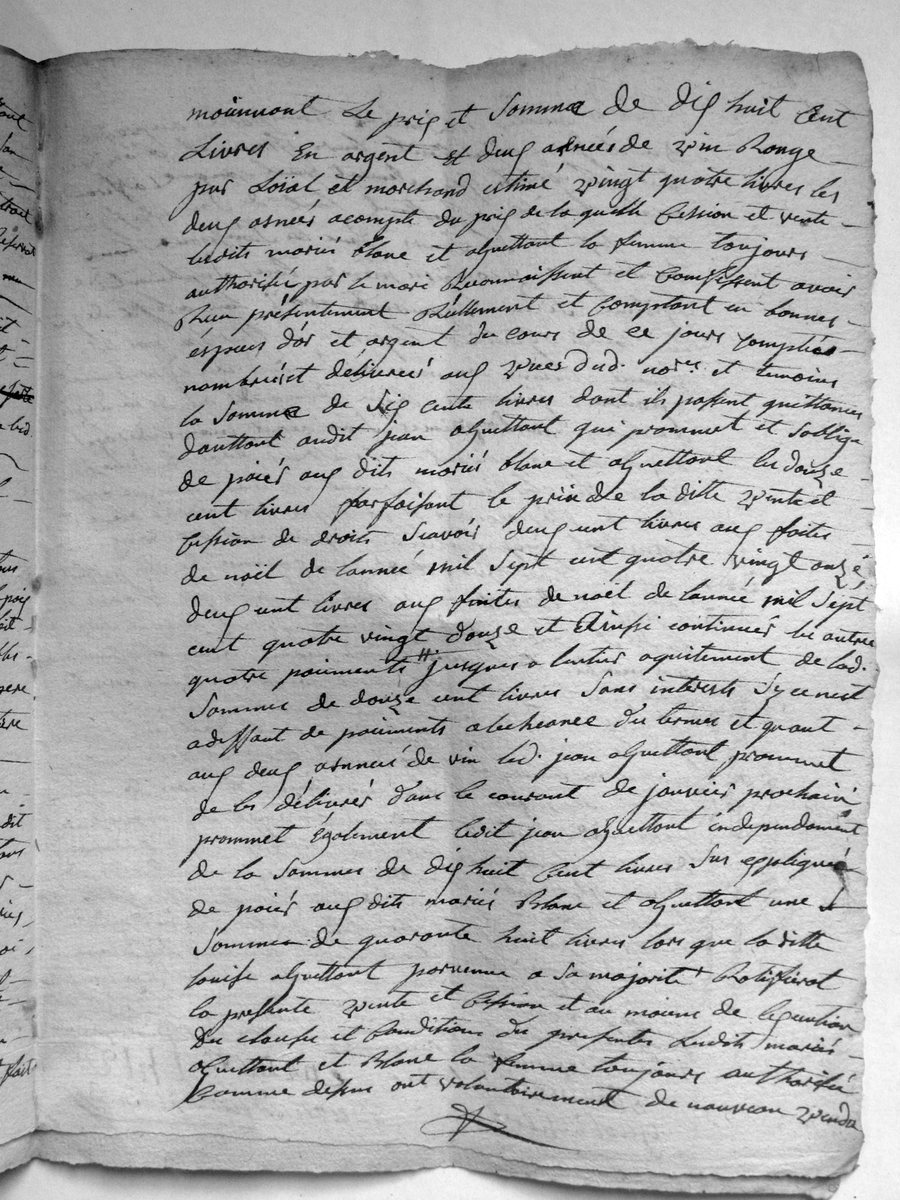 moiennant Le prix et Somme de dix huit Cent
Livres En argent et deux asneés de vin Rouge
pur Loïal et marchand estimé vingt quatre livres les
deux asneés acompte du prix de la quelle Cession et vente
lesdits mariés blanc et aguettant la femme toujours
authorisée par le mari Reconnaissent et Confessent avoir
Reçu présentement Réellement et Comptant en bonnes
especes d'or et argent du cours de ce jours Comptées
nombrées et délivreés aux vues dud. nore. et temoins
la Somme de Six Cents livres dont ils passent quittance
dauttant audit jean aguettant qui prommet et Soblige
de paiér aux dits mariés blanc et aguettant les douze
cent livres parfaisant le prix de la ditte vente et
Cession de droits Scavoir deux cent livres aux faites
de noël de lanneé mil Sept cent quatre vingt onze
deux cent livres aux faites de noël de lanneé mil Sept
cent quatre vingt douze et Ainssi continuer les autres
quatre paiments jusques a lentier aquitement de lad.
Somme de douze cent livres Sans interests Sy ce nest
adeffaut de paiments alecheance du termes et quant
aux deux asneés de vin led. jean aguettant prommet
de les délivrér dans le courant de janvier prochain
prommet Également ledit jean aguettant independament
de la Sommes de dix huit Cent livres Sus expliqueé
de paiér aux dits mariés Blanc et aguettant une
Somme de quarante huit livres lors que la ditte
louise aguettant parvenue a Sa majorité Ratifierat
la presente vente et Cession et au moien de
du clause et Conditions du presentes Lesdits mariés
aguettant et Blanc la femme toujours authorisée
Comme dessus ont volontairement de nouveau vendu